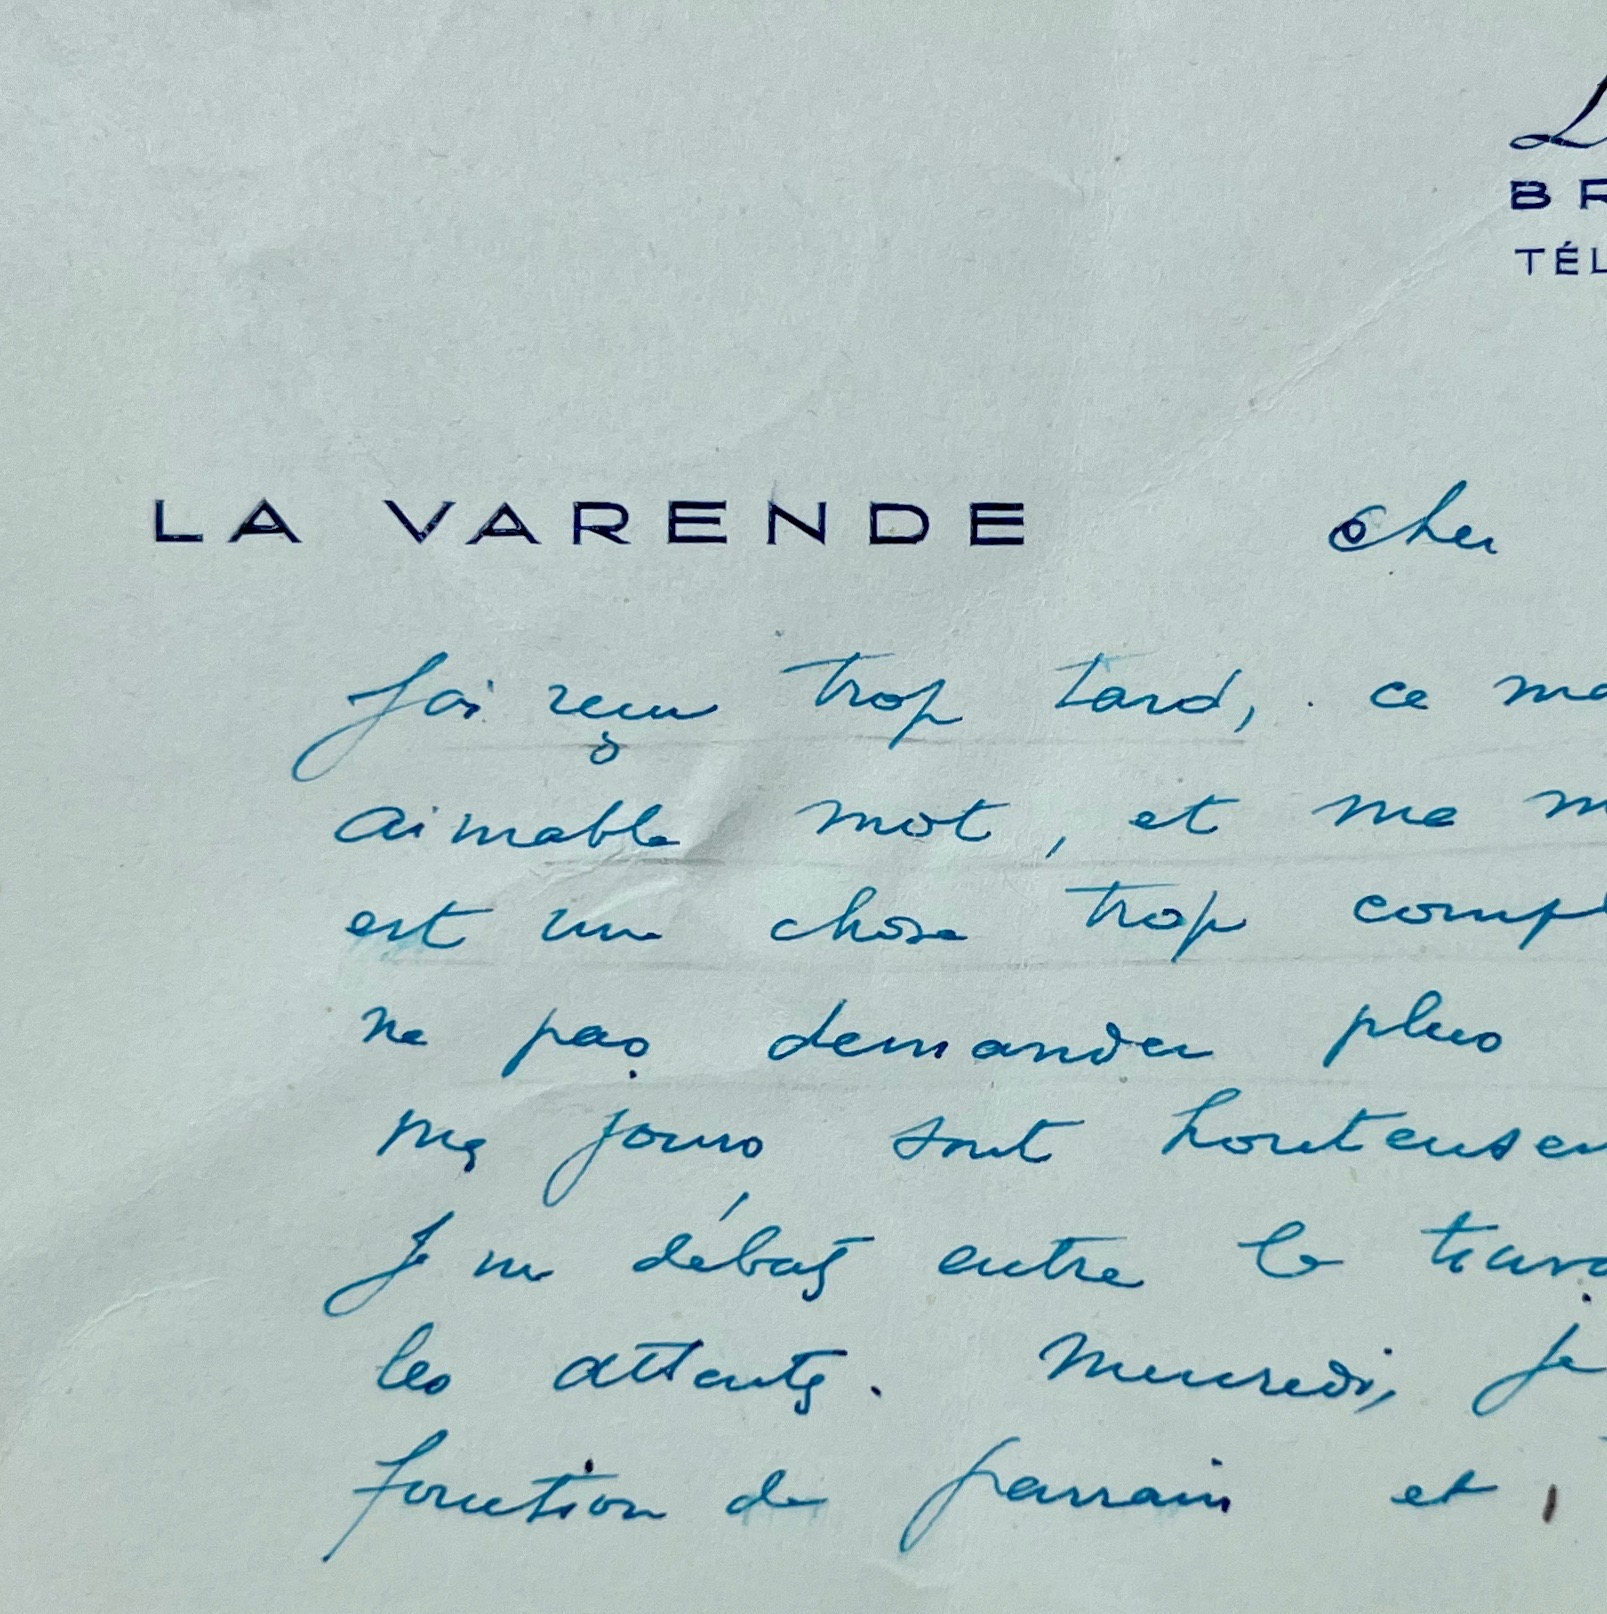 L
BR
TÉL
LA VARENDE cher
J'ai reçu trop tard, ce ma
aimable mot, et me m
est une chose trop compl
ne pas demander plus
mes jours sont honteusem
Je me débats entre le trava
les attente. Mercredi, je
fonction de parrain et